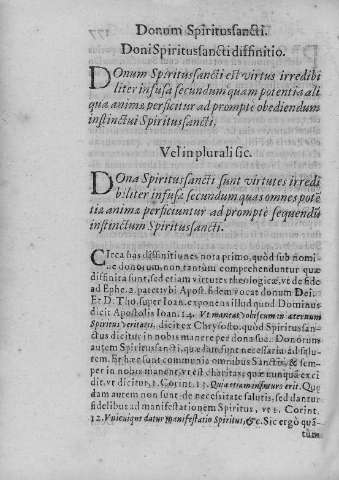 Donum Spiritussancti.
Doni Spiritussancti diffinitio.
DOnum Spiritussancti est virtus irredibi
liter infusa secundum quam potentia ali
qua animæ perficitur ad promptè obediendum
instinctui Spiritussancti.
Vel in plurali sic.
DOna Spiritussancti sunt virtutes irredi
biliter infusæ secundum quas omnes pote
tiæ animæ perficiuntur ad promptè sequendũ
instinctum Spiritussancti.
CIrca has diffinitiones nota primo, quòd sub nomi
ne donorum, non tantùm comprehenduntur quæ
diffinita sunt, sed etiam virtutes theologicæ, vt de fide
ad Ephe. 2. patet vbi Apost. fidem vocat donum Dei.
Et D. Tho. super Ioan. exponens illud quod Dominus
dicit Apostolis Ioan. 14. Vt maneat vobiscum in æternum
Spiritus veritatis, dicit ex Chrysosto. quòd Spiritussan
ctus dicitur in nobis manere per dona sua. Donorum
autem Spiritussancti, quædam sunt necessaria ad salu-
tem. Et hæc sunt communia omnibus Sanctis, & sem
per in nobis manent, vt est charitas quæ nunquam exci
dit, vt dicitur, 1. Corint. 13. Quia etiam in futuro erit. Quæ
dam autem non sunt de necessitate salutis, sed dantur
fidelibus ad manifestationem Spiritus, vt 1. Corint.
12. Vnicuique datur manifestatio Spiritus, &c. Sic ergò quã
tùm
177